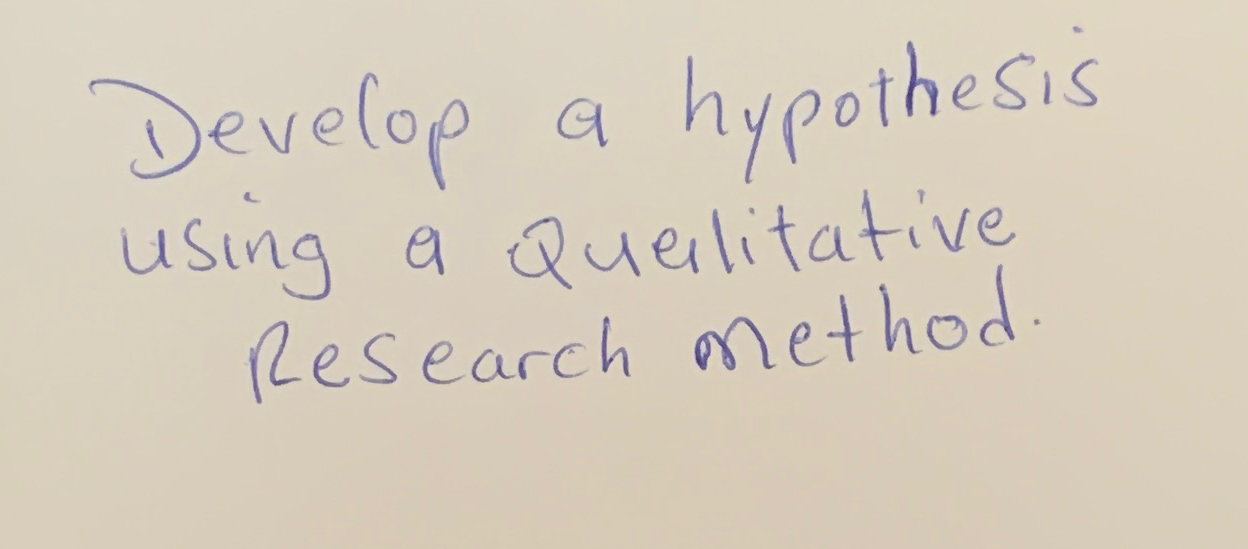 Develop a hypothesis
using a Qualitative
Research method.